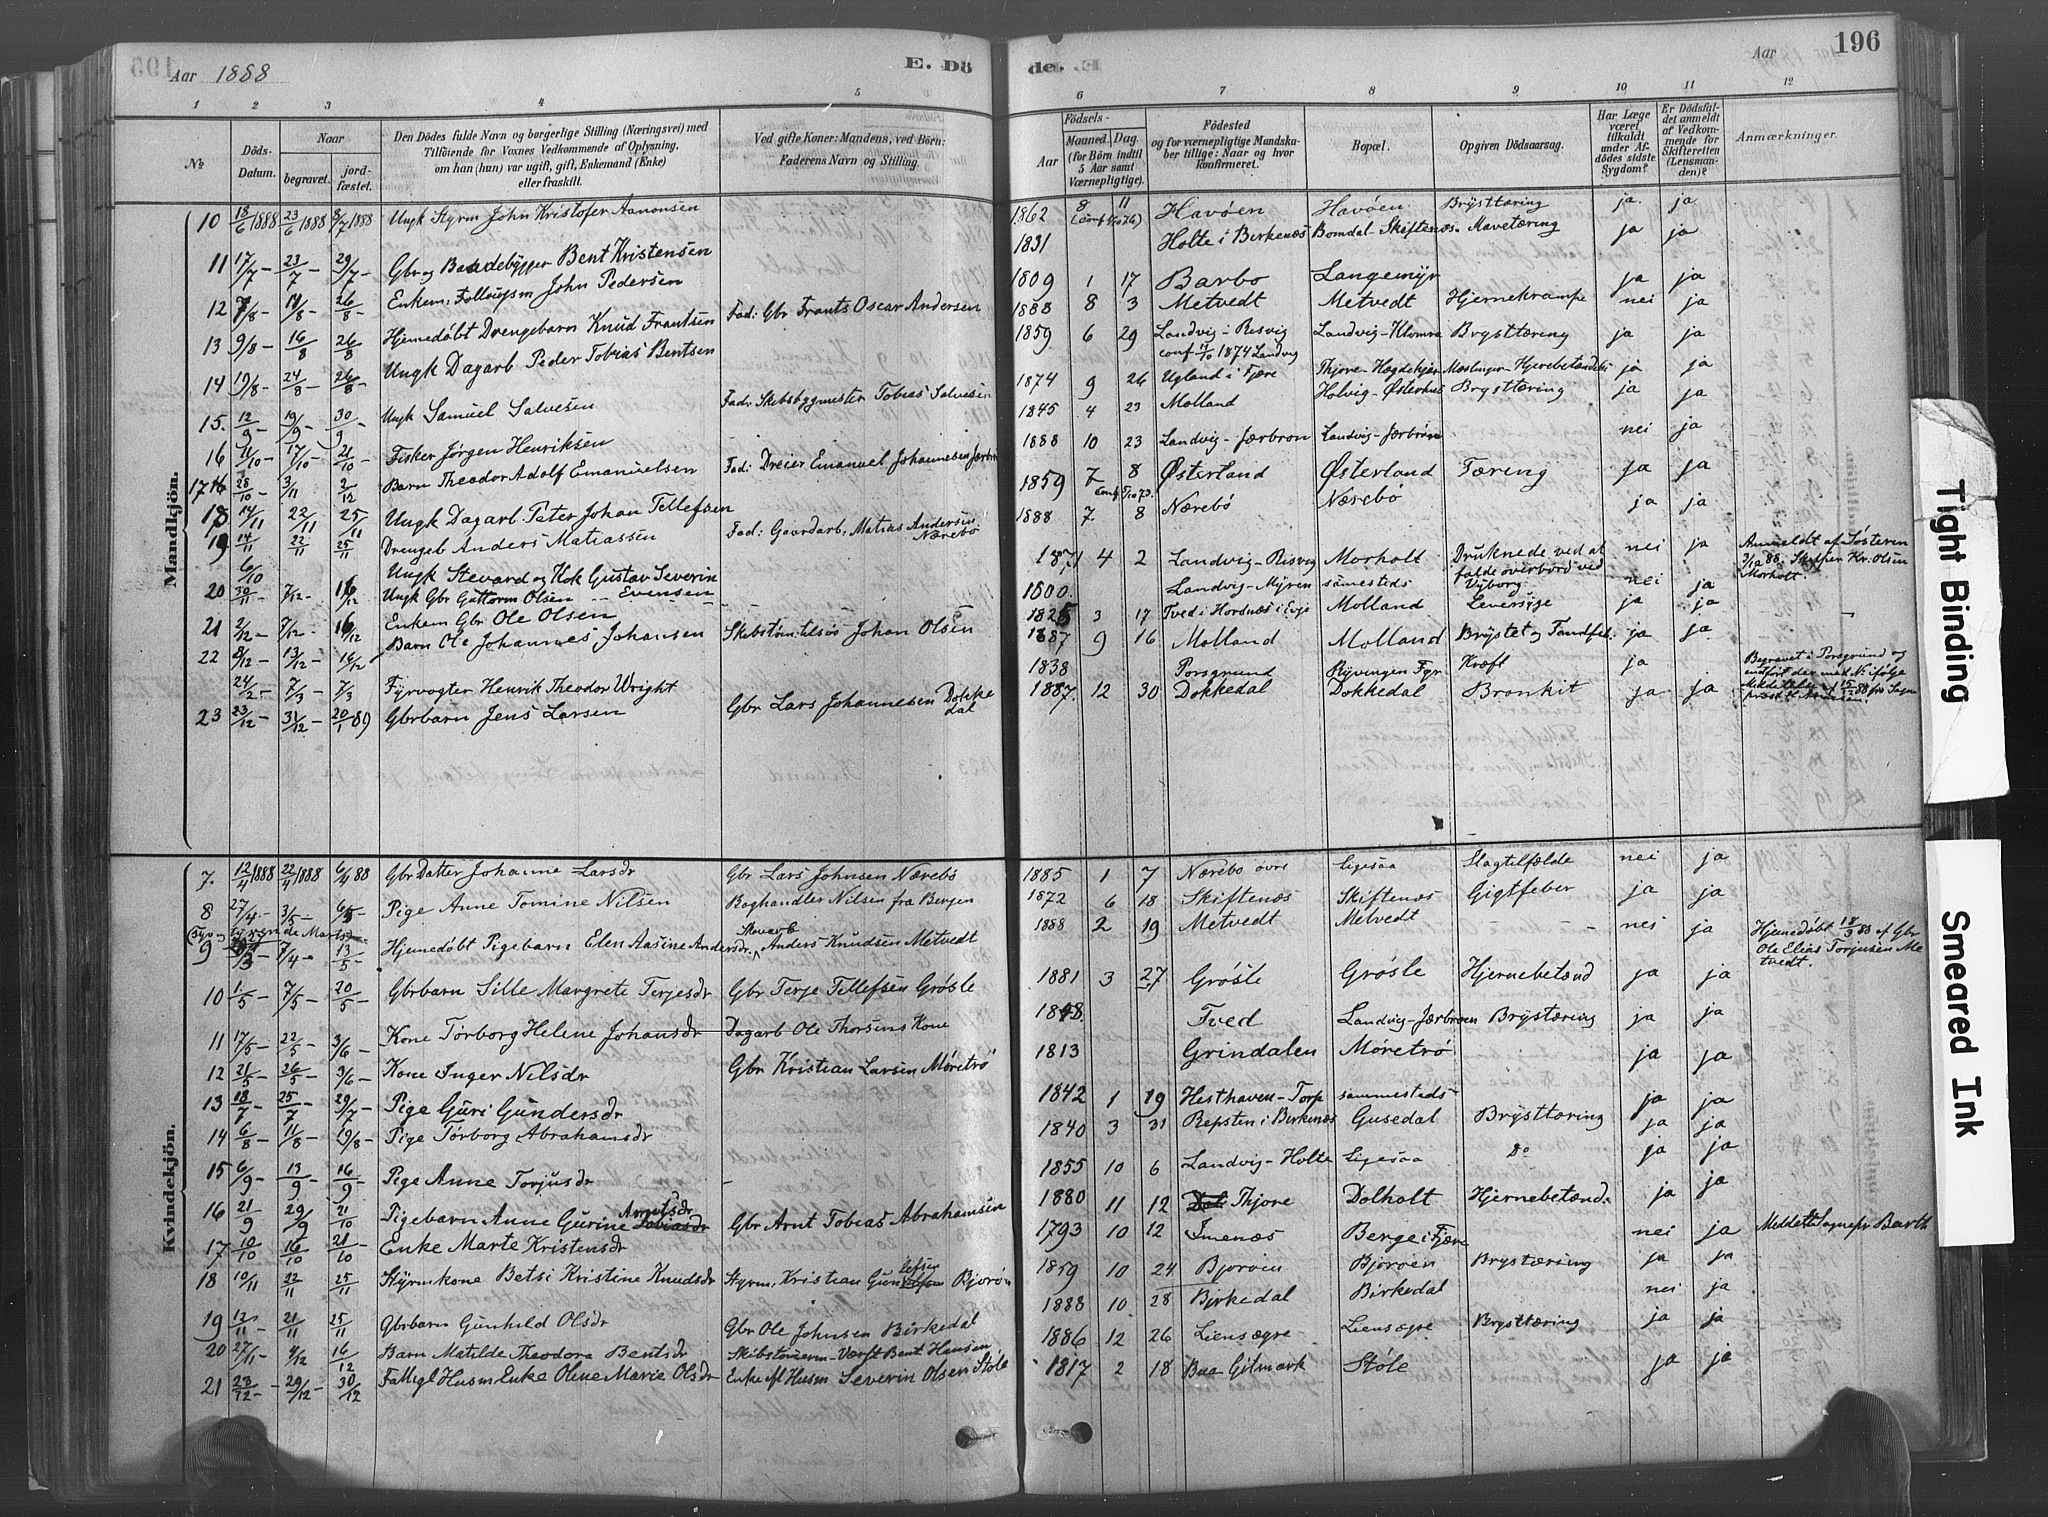 195
Aar 1888
E. Dö
de. E
Aar
196
1 2 3 4 5 6 7 8 9 10 11 12
№
Döds-Datum.
Naar
begravet.
jord-fæstet.
Den Dödes fulde Navn og borgerlige Stilling (Næringsvei) med
Tilföiende for Voxnes Vedkommende af Oplysning,
om han (hun) var ugift, gift, Enkemand (Enke)
eller fraskilt.
Ved gifte Koner: Mandens, ved Börn:
Faderens Navn og Stilling.
Födsels-
Aar
Maaned. Dag.
(for Börn indtil
5 Aar samt
Værnepligtige).
Födested
og for værnepligtige Mandska-
ber tillige: Naar og hvor
konfirmeret.
Bopæl.
Opgiven Dödsaarsag.
Har Læge
været
tilkaldt
under Af-
dödes sidste
Sygdom?
Er Dödsfal-
det anmeldt
af Vedkom-
mende for
Skifteretten
(Lensman-
den)?
Anmærkninger.
Mandkjön.
10 18/6 1888 23/6 1888 8/7 1888 Ungk Styrm John Kristofer Aanonsen 1862 8 11 Havöen Havöen Brysttæring ja ja
11 17/7 – 23/7 – 29/7 – Gbr og Baadebygger Bent Kristensen 1831 Holte i Birkenæs Bomdal-Skiftenæs Mavetæring ja ja
12 7/8 – 11/8 – 26/8 – Enkem: John Pedersen 1809 1 17 Barbo Langemyr ja ja
13 9/8 – 16/8 26/8 Hjemedöbt Drengebarn Knud Frantsen Fad: Gbr Frants Oscar Andersen 1888 8 3 Metvedt Metvedt Hjernekrampe nei ja
14 19/8 – 24/8 26/8 – Ungk Dagarb Peder Tobias Bentsen 1859 6 29 Landvig-Resvig Landvig-Klomra Brysttæring ja ja
conf 1874 Landvig
15. 12/9 – 19/9 – 30/9 Ungk Samuel Salvesen Fadr Skibsbygmester Tobias Salvesen 1874 9 26 Ugland i Fjære ja ja
16 11/10 – 17/10 – 21/10 Fisker Jörgen Henriksen 1845 4 23 Molland Holvig-Østerhus Brysttæring ja ja
17 28/10 – 3/11 2/12 Barn Theodor Adolf Emanuelsen Fad: Dreier Emanuel Johannesen 1888 10 23 Landvig-Jærbron Landvig-Jærbron nei ja
18 17/11 22/11 25/11 Ungk Dagarb Peter Johan Tellefsen 1859 7 8 Østerland Østerland Tæring ja ja
19 14/11 22/11 25/11 Drengeb Anders Matiassen Fad: Gaardarb. Matias Andersen Nærebö 1888 7. 8 Nærebö Nærebö ja ja
6/10 Ungk Stevard og Kok Gustav Severin Evensen 4 2 Landvig-Resvig Morholt Druknede ved at falde overbord ved Vyborg nei ja Anmeldt af Søsteren Skipper Kr. Olsen Morholt.
20 30/11 – 7/12 – 16/12 Ungk Gbr Guttorm Olsen Landvig-Myren samesteds nei ja
21 2/12 – 7/12 – 16/12 Enkem Gbr Ole Olsen 1825 3 17 Tved i Hordnes i Evje Molland Leversyge ja ja
22 8/12 – 13/12 – 16/12 Barn Ole Johannes Johansen Johan Olsen 1887 9 16 Molland Molland Brystet og Tandfeb. ja ja
24/2 – 7/3 – 7/3 Fyrvogter Henrik Theodor Wright 1838 Porsgrund Ryvingen Fyr Kræft ja Begravet i Porsgrund og
23 23/12 – 31/12 – 20/1 89 Gbrbarn Jens Larsen Gbr Lars Johannesen Dokkedal 1887. 12 30 Dokkedal Dokkedal Bronkit ja ja
Kvindekjön.
7. 12/4 1888 22/4 1888 6/4 88 Gbr Datter Johanne Larsdr Gbr Lars Johnsen Nærebö 1885 1 7 Nærebö övre Ligesaa Slagtilfælde nei ja
8 27/4 – 3/5 – 6/5 Pige Anne Tomine Nilsen Boghandler Nilsen fra Bergen 1872 6 18 Skiftenæs Skiftenæs Gigtfeber ja ja
9 7/4 – 13/5 – Hjemedöbt Pigebarn Elen Aasine Andersdr. Anders Knudsen Metvedt 1888 2 19 Metvedt Metvedt – – nei ja Hjemedöbt 18/3 88 af Gbr Ole Elias Torjusen Metvedt.
10 1/5 – 7/5 – 20/5 Gbrbarn Sille Margrete Terjesdr Gbr Terje Tellefsen Grösle 1881 3 27 Grösle Grösle Hjernebetænd ja ja
11 17/5 – 22/5 – 3/6 – Kone Torborg Helene Johansdr Dagarb Ole Thorsens Kone Tved Landvig-Jærbroen Brystæring ja ja
12 21/5 – 26/5 – 3/6 – Kone Inger Nilsdr Gbr Kristian Larsen Möretrö 1813 Grindalen Möretrö ja ja
13 18/7 – 25/7 29/7 – Pige Guri Gundersdr 1842 1 19 Hesthaven-Torp sammesteds ja ja
14 6/8 – 11/8 – 19/8 – Pige Torborg Abrahamsdr 1840 3 31 Repsten i Birkenæs Gusedal Brysttæring ja ja
15 6/9 – 13/9 – 16/9 Pige Anne Torjusdr – 1855 10 6 Landvig-Holte Ligesaa do ja ja
16 21/9 29/9 21/10 Pigebarn Anne Gurine Arntsdr Gbr Arnt Tobias Abrahamsen 1880 11 12 Thjore Dolholt Hjernebetænd. ja ja
17 10/10 16/10 21/10 Enke Marte Kristensdr 1793 10 12 Imenæs Berge i Fjære nei ja Meddelt Sognepr Barth
18 10/11 22/11 25/11 Styrmkone Betsi Kristine Knudsdr Styrm. Kristian Gunlefsen Bjoröen 1859 10 24 Bjoröen Bjoröen Brystæring ja ja
19 12/11 – 21/11 25/11 Gbrbarn Gunhild Olsdr Gbr Ole Johnsen Birkedal 1888 10 28 Birkedal Birkedal nei ja
20 27/11 – 4/12 16/12 Barn Matilde Theodora Bentsdr Skibstömerm-Værft Bent Hansen 1886 12 26 Liensægre Liensægre Brysttæring ja ja
21 23/12 – 29/12 – 30/12 Fattigl Husm Enke Olene Marie Olsdr Enke af Husm Severin Olsen Støle 1817 2 18 Baa Gitmark Støle ja ja
Tight Binding
Smeared Ink